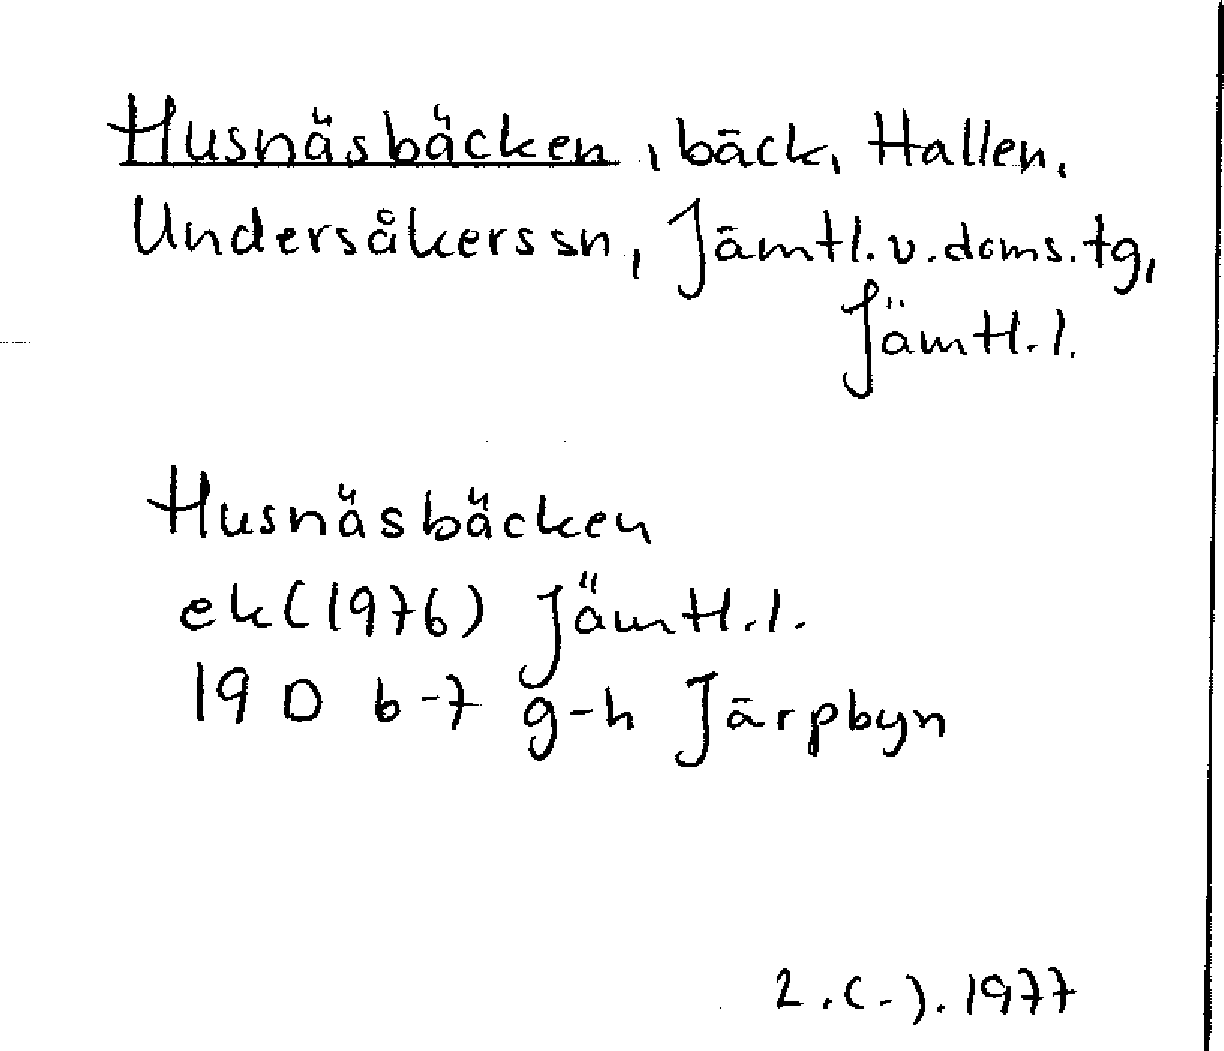 Husnäsbäcken, bäck, Hallen,
Undersåkers sn, Jämtl. v. doms. tg,
Jämtl. l.
Husnäsbäcken
ek (1976) Jämtl. l.
19 D 6-7 g-h Järpbyn
2.(-).1977